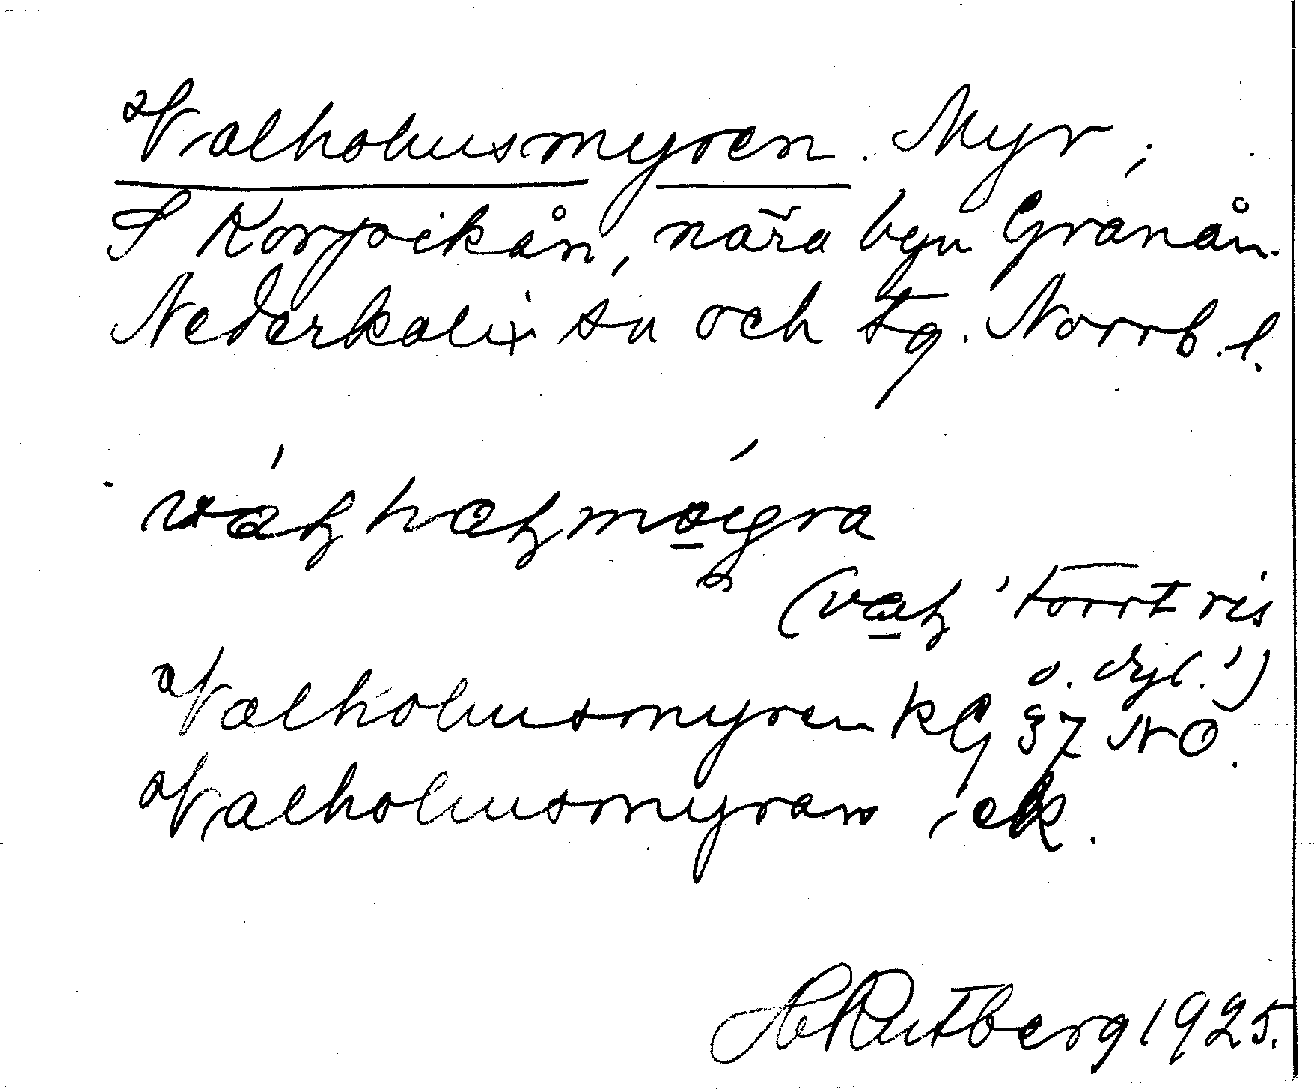 Valholmsmyren. Myr,
S Korpikån, nära byn Granån.
Nederkalix sn och tg. Norrb. l.
(vaɽ 'torrt vis
o. dyl.')
Valholmsmyren kG 37 NO.
Valholmsmyran ek.
H Rutberg 1925.